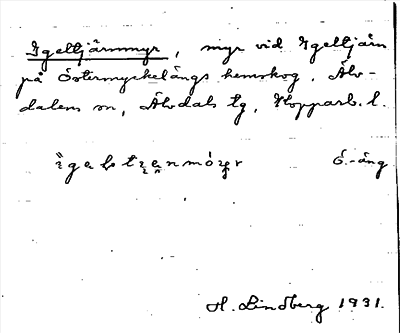 Igeltjärnmyr, myr vid Igeltjärn
på Östermyckelängs hemskog, Älv-
dalens sn, Älvdals tg, Kopparb. l.
Ö.-äng
H. Lindberg 1931.